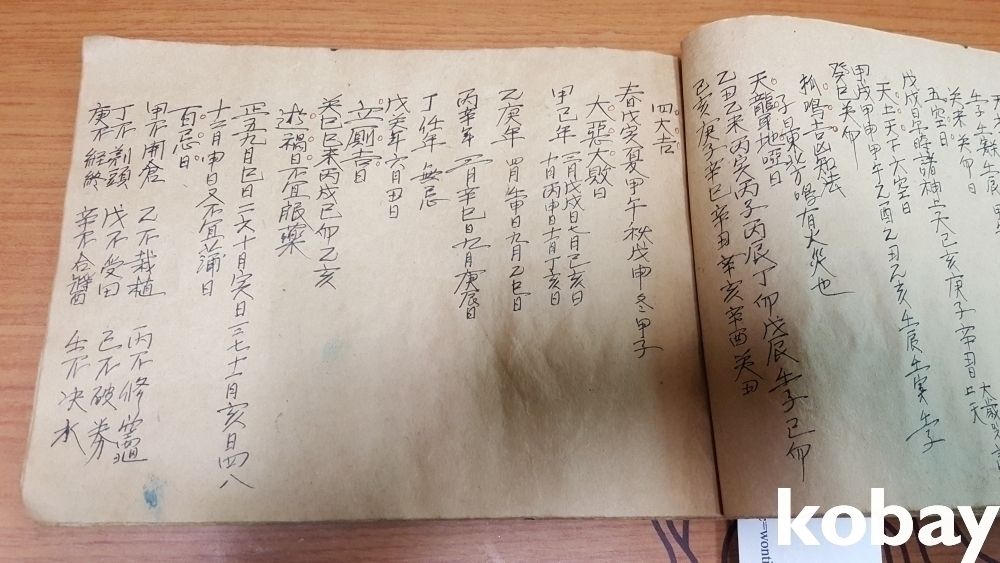 五空日
戊戌日午時諸神上天己亥庚子辛丑日上天
天上天下大空日
甲戌甲申甲午乙酉乙丑乙亥壬辰壬寅壬子
癸巳癸卯
狐鳴吉凶知法
天龍耳地啞日
乙丑乙未丙寅丙子丙辰丁卯戊辰壬子己卯
己亥庚子辛巳辛丑辛亥辛酉癸丑
四大吉
春戊寅夏甲午秋戊申冬甲子
大惡大敗日
甲己年 三月戊戌日七月己亥日
十月丙申日十一月丁亥日
乙庚年 四月壬申日九月乙巳日
丙辛年 三月辛巳日九月庚辰日
丁任年 無忌
戊癸年 六月甲日
立厠吉日
癸巳巳未丙戌己卯乙亥
逝禍日不宜服藥
正五九月巳日二六十月寅日三七十一月亥日四八
十二月申日又不宜蒲日
百忌日
甲不開倉 乙不栽植 丙不修竈
丁不剃頭 戊不受田 己不破券
庚不經絡 辛不合醬 壬不決水
kobay